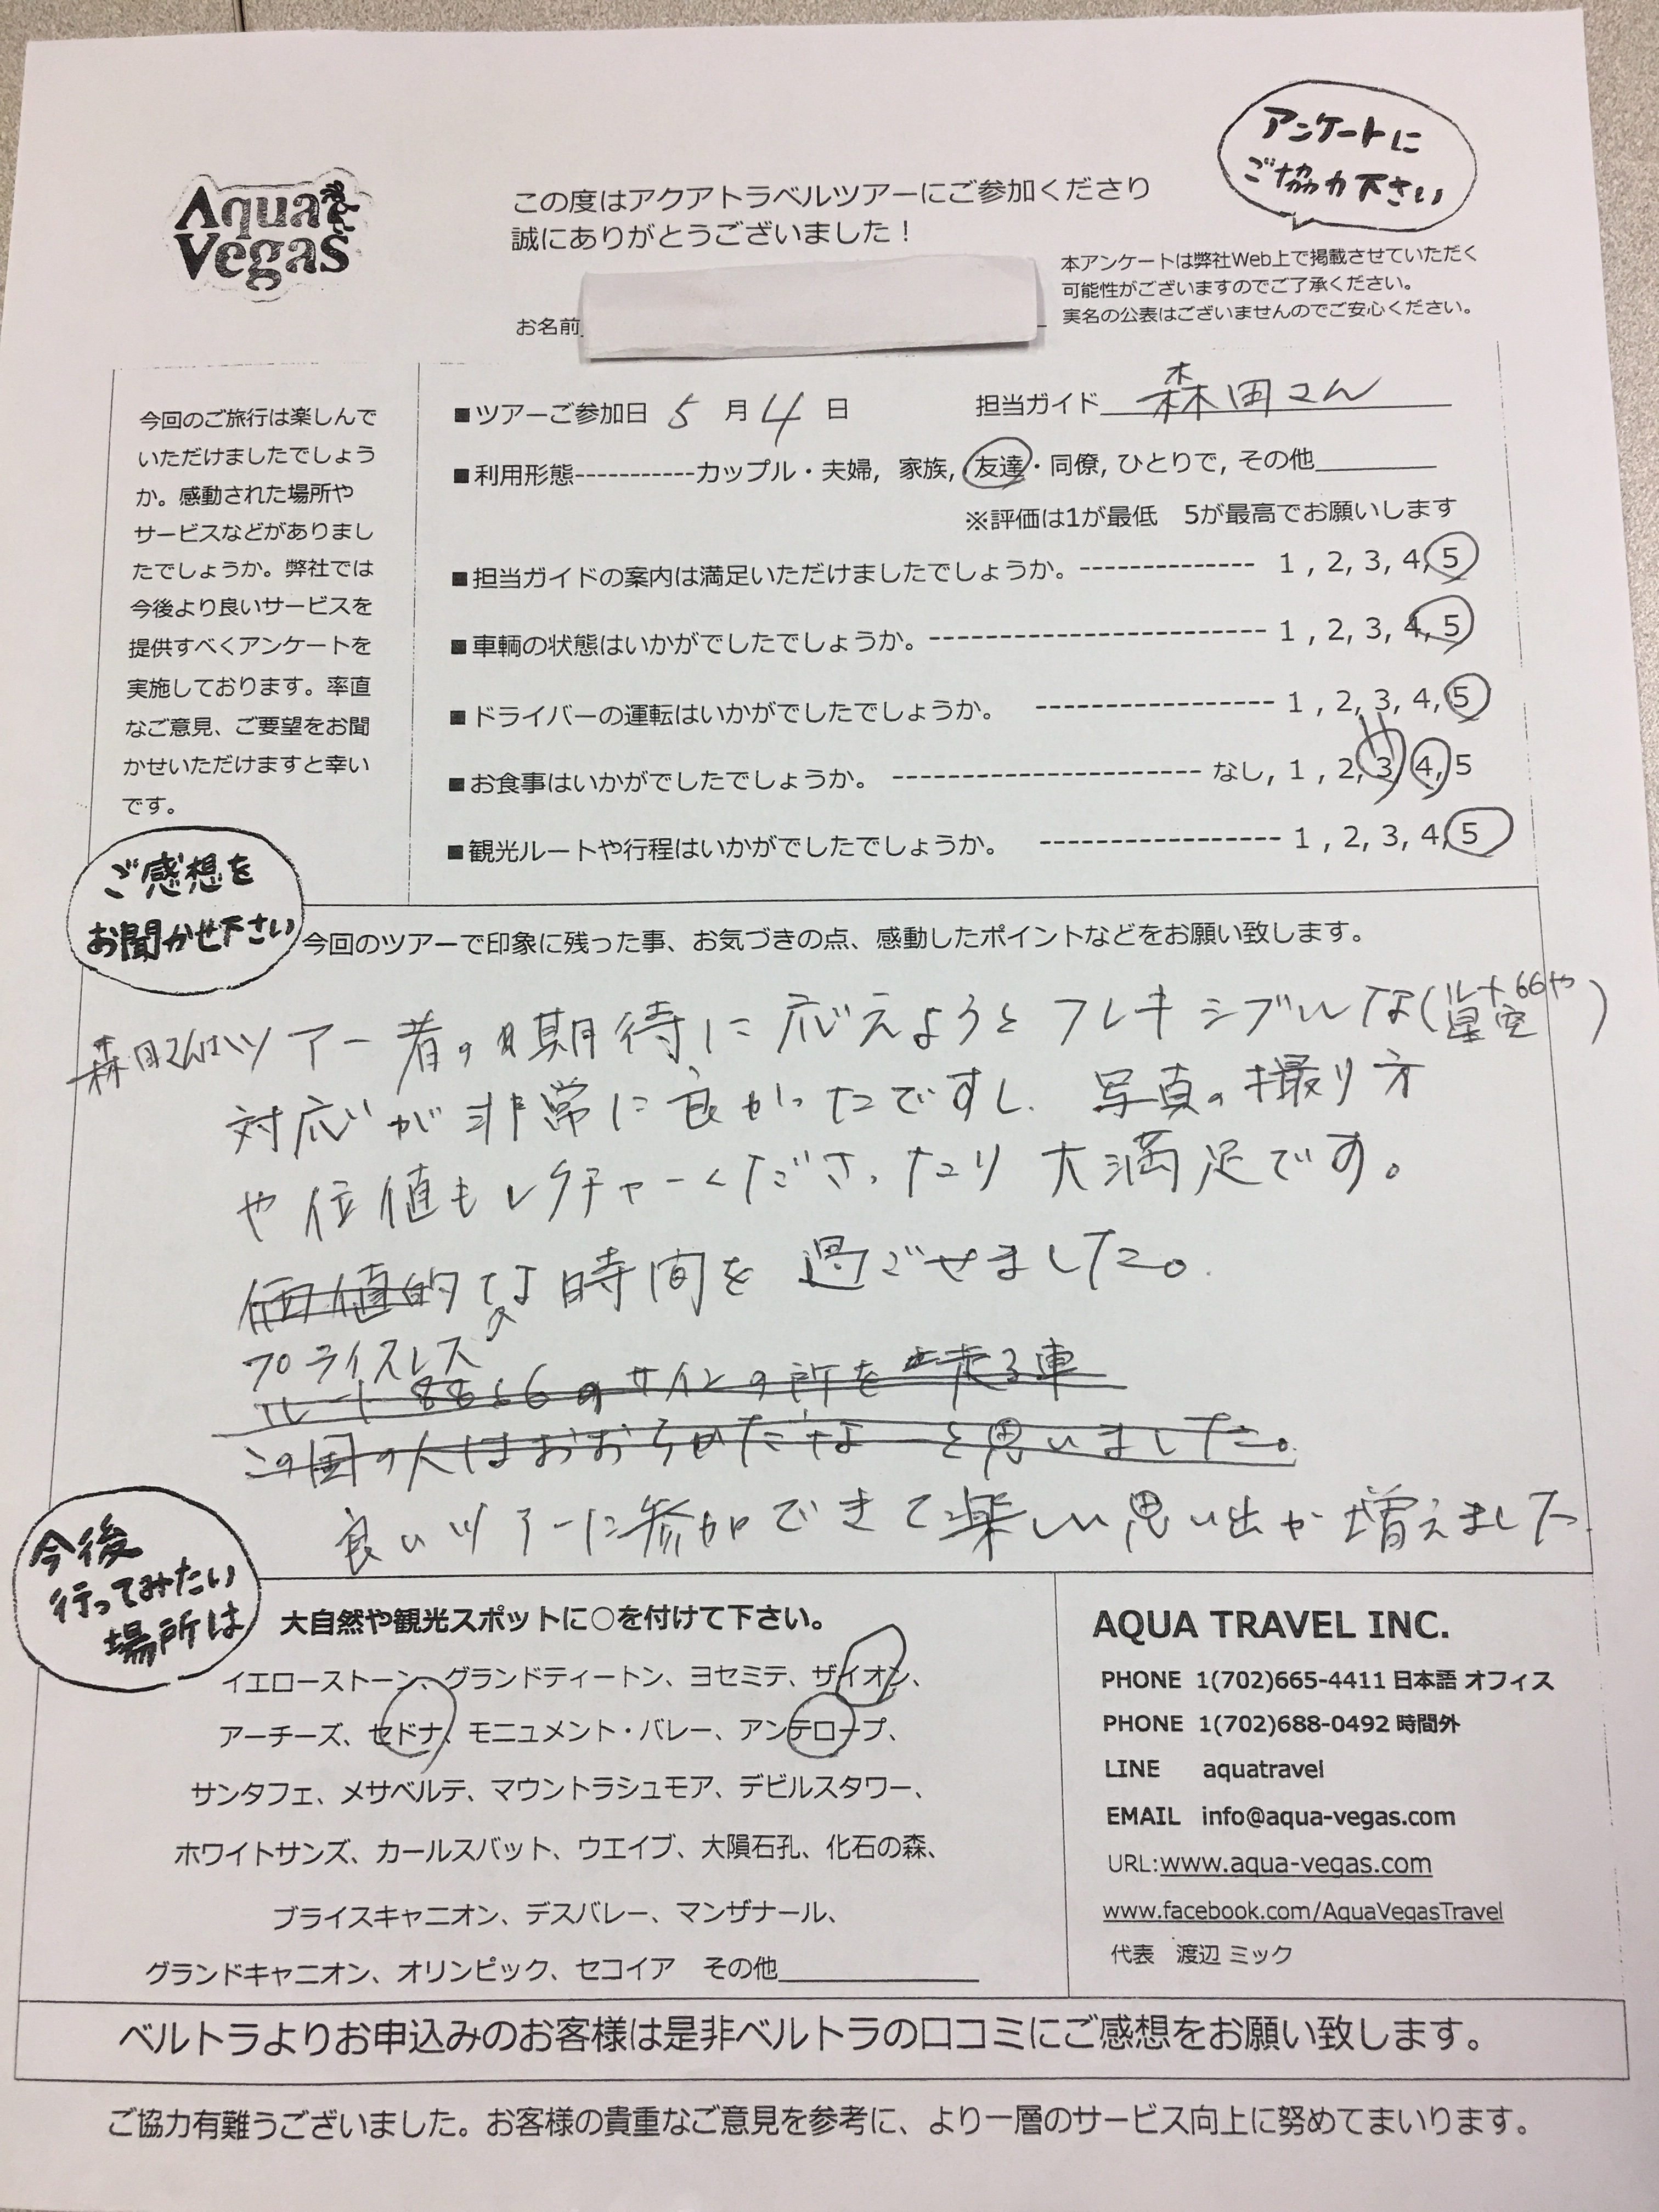 Aqua
Vegas
この度はアクアトラベルツアーにご参加くださり
誠にありがとうございました！
アンケートに
ご協力下さい
本アンケートは弊社Web上で掲載させていただく
可能性がございますのでご了承ください。
実名の公表はございませんのでご安心ください。
お名前
今回のご旅行は楽しんで
いただけましたでしょう
か。感動された場所や
サービスなどがありまし
たでしょうか。弊社では
今後より良いサービスを
提供すべくアンケートを
実施しております。率直
なご意見、ご要望をお聞
かせいただけますと幸い
です。
■ツアーご参加日 5 月 4 日 担当ガイド 森田さん
■利用形態-----------カップル・夫婦, 家族, 友達・同僚, ひとりで, その他______
※評価は1が最低 5が最高でお願いします
■担当ガイドの案内は満足いただけましたでしょうか。------------- 1 , 2, 3, 4, 5
■車輌の状態はいかがでしたでしょうか。------------------------- 1 , 2, 3, 4, 5
■ドライバーの運転はいかがでしたでしょうか。 ----------------- 1 , 2, 3, 4, 5
■お食事はいかがでしたでしょうか。 ---------------------- なし, 1 , 2, 3, 4, 5
■観光ルートや行程はいかがでしたでしょうか。 ----------------- 1 , 2, 3, 4, 5
ご感想を
お聞かせ下さい
今回のツアーで印象に残った事、お気づきの点、感動したポイントなどをお願い致します。
森田さんはツアー者の期待に応えようとフレキシブルな(ルート66や星空)
対応が非常に良かったですし、写真の撮り方
や位値もレクチャーくださったり大満足です。
価値的な時間を過ごせました。
プライスレス
ルート 66のサインの所を走る車
この国の人はおおらかだなーと思いました。
良いツアーに参加できて楽しい思い出が増えました
今後
行ってみたい
場所は
大自然や観光スポットに○を付けて下さい。
イエローストーン、グランドティートン、ヨセミテ、ザイオン、
アーチーズ、セドナ、モニュメント・バレー、アンテロープ、
サンタフェ、メサベルテ、マウントラシュモア、デビルスタワー、
ホワイトサンズ、カールスバット、ウエイブ、大隕石孔、化石の森、
ブライスキャニオン、デスバレー、マンザナール、
グランドキャニオン、オリンピック、セコイア その他__________
AQUA TRAVEL INC.
PHONE 1(702)665-4411 日本語 オフィス
PHONE 1(702)688-0492 時間外
LINE aquatravel
EMAIL info@aqua-vegas.com
URL:www.aqua-vegas.com
www.facebook.com/AquaVegasTravel
代表 渡辺 ミック
ベルトラよりお申込みのお客様は是非ベルトラの口コミにご感想をお願い致します。
ご協力有難うございました。お客様の貴重なご意見を参考に、より一層のサービス向上に努めてまいります。